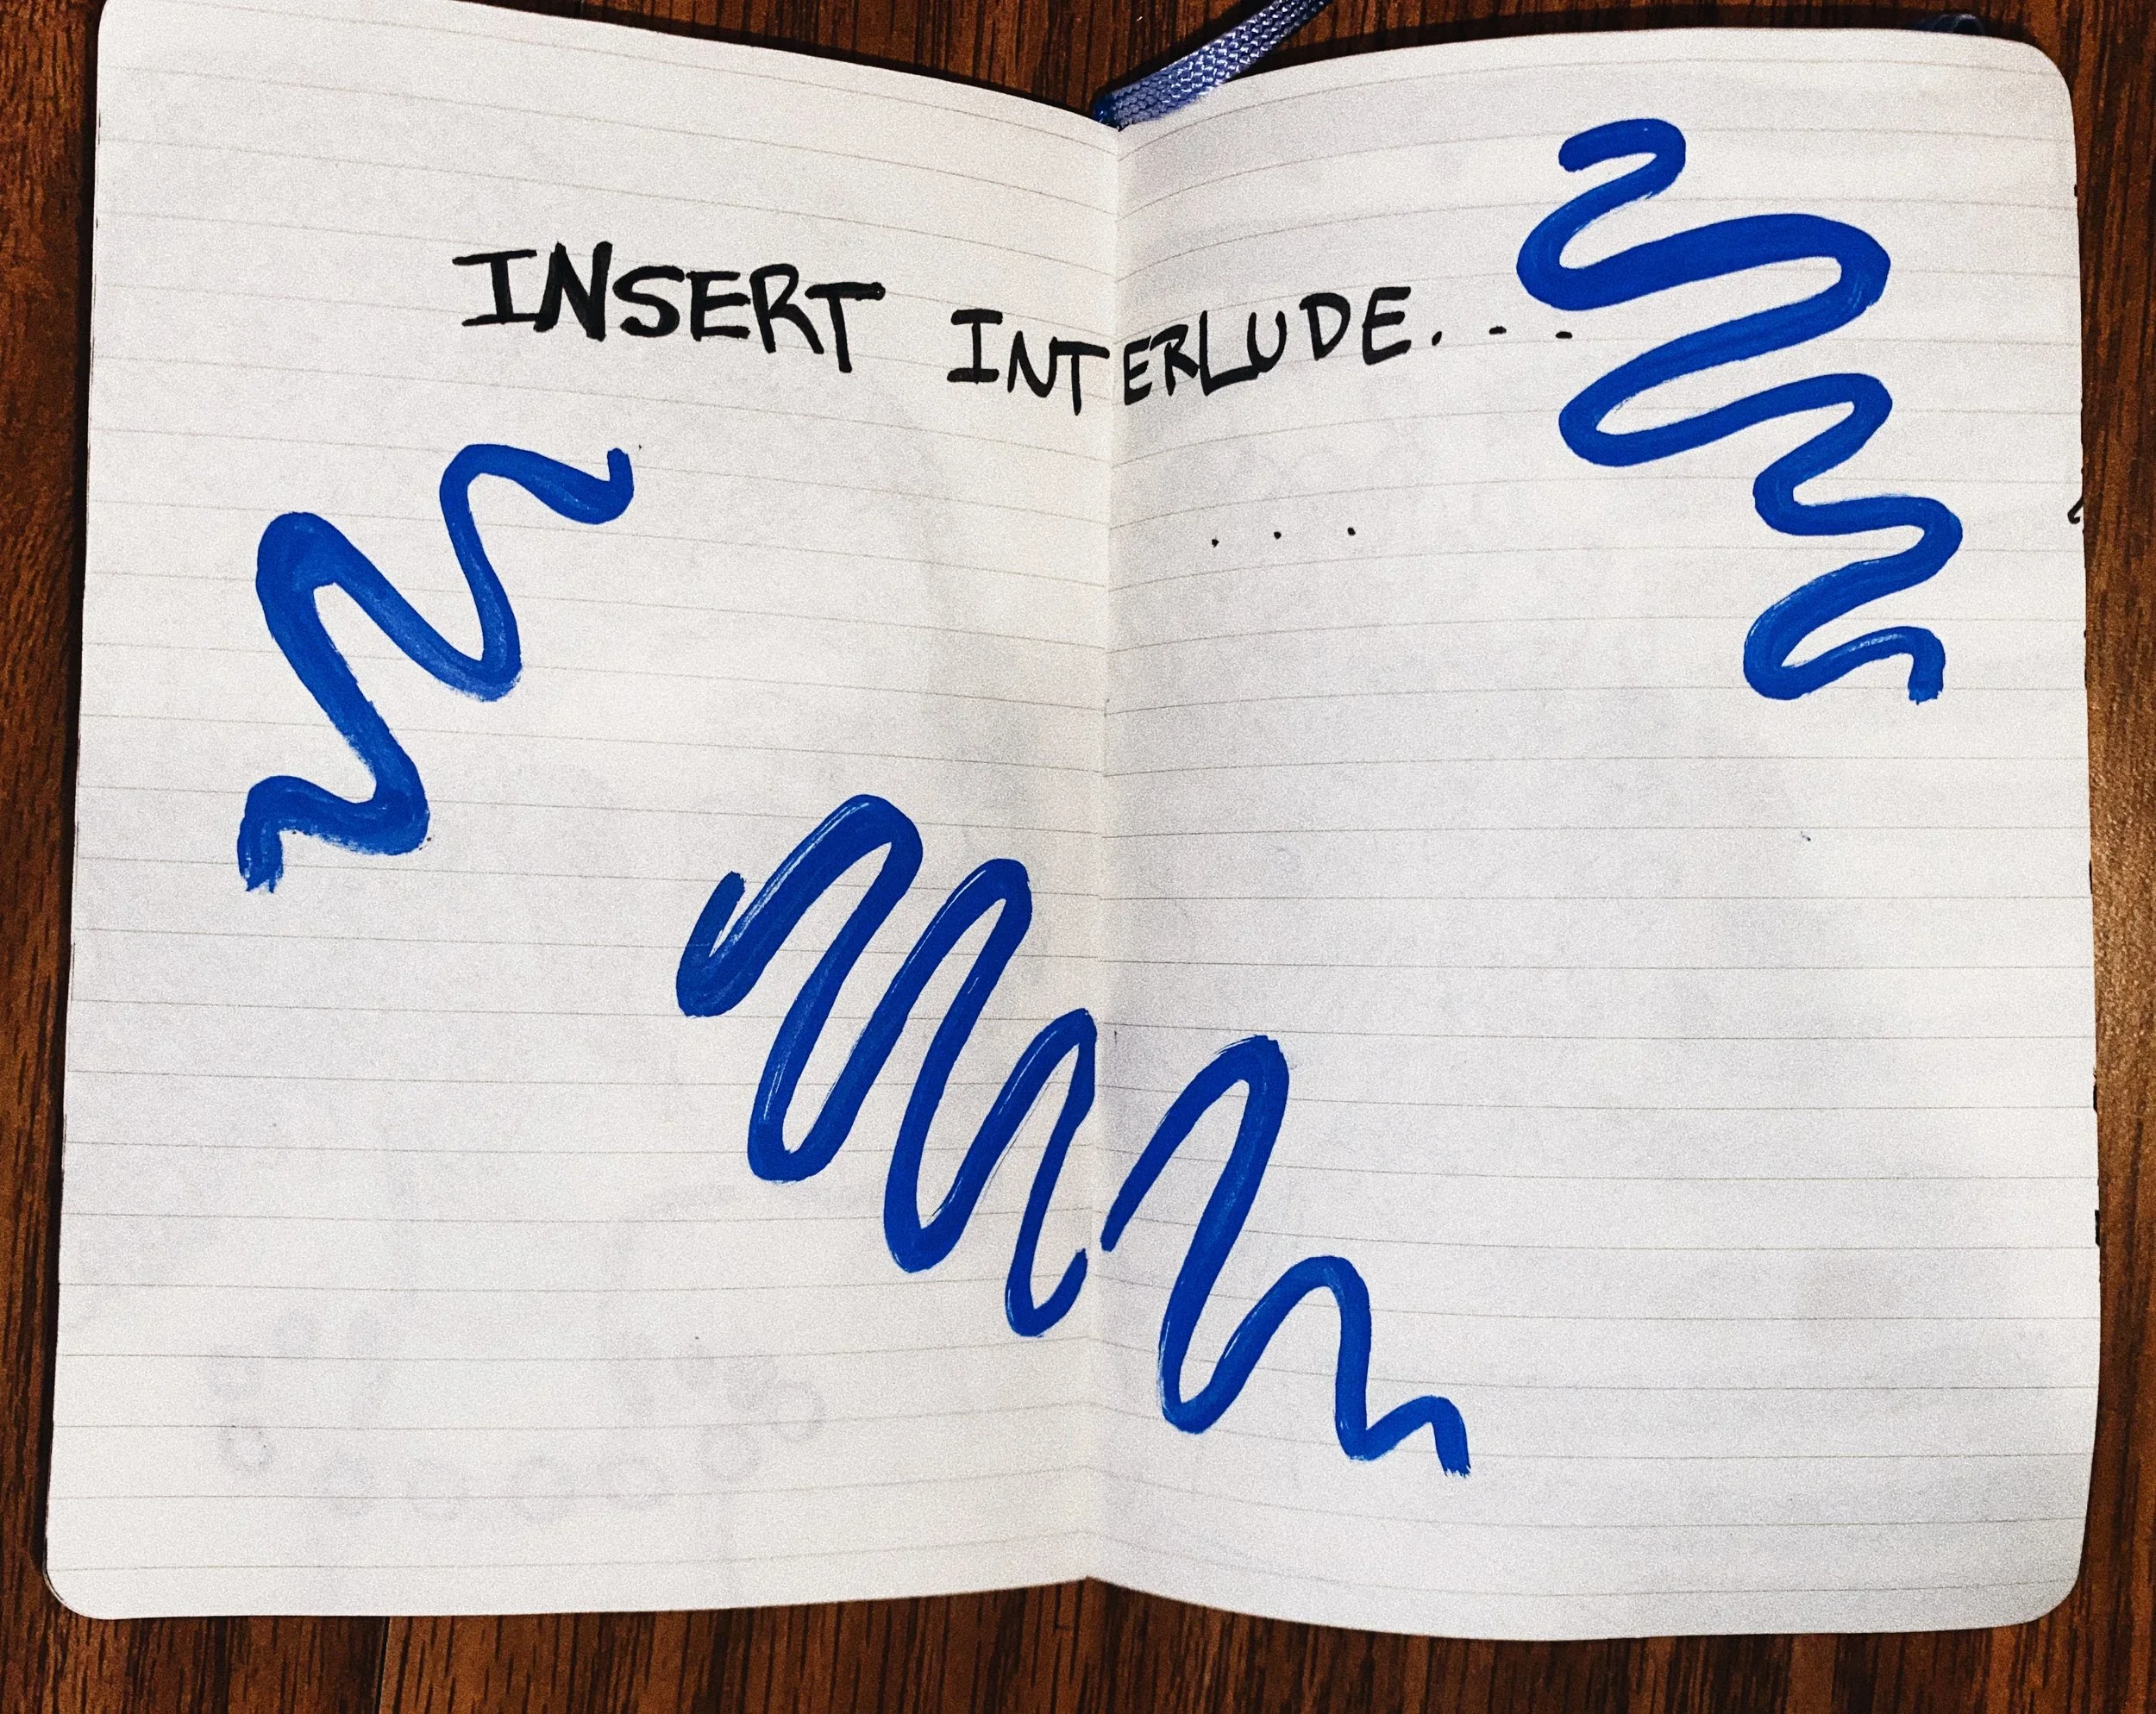 INSERT INTERLUDE. . .
. . .